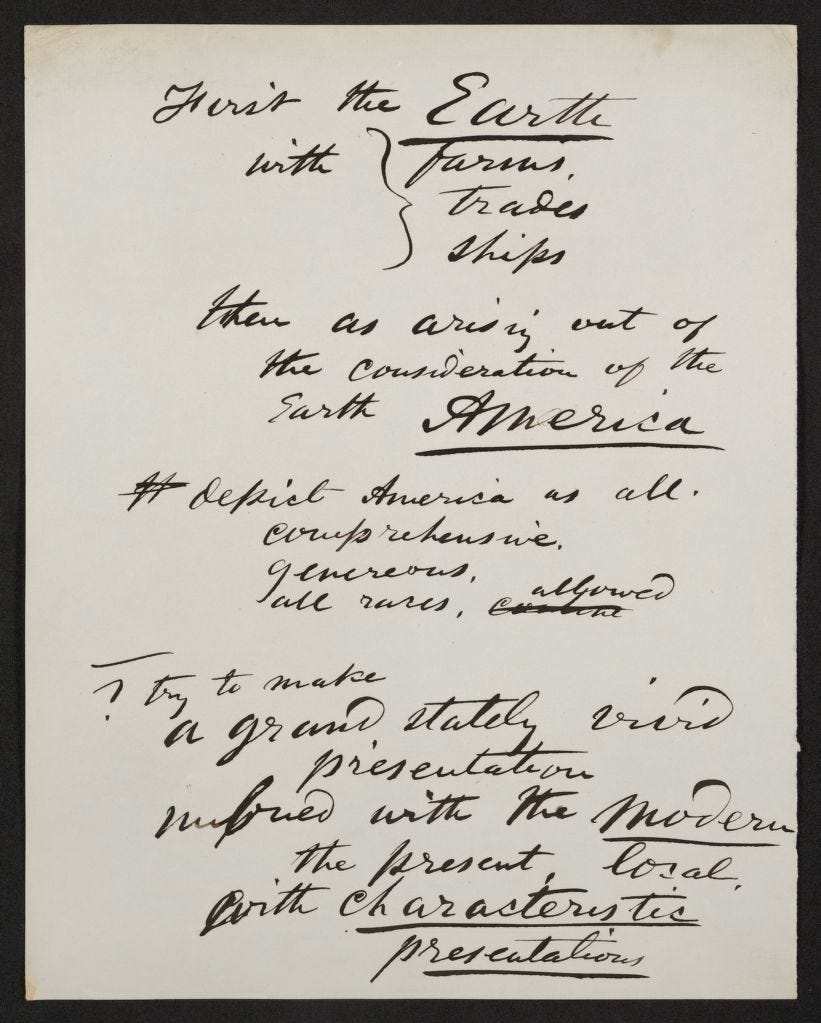 First the Earth
with } farms,
trades
ships
then as arising out of
the consideration of the
Earth America
depict America as all.
comprehensive.
genereous,
all races, allowed
? try to make
a grand stately vivid
presentation
with the modern
the present, local,
with characteristic
presentations